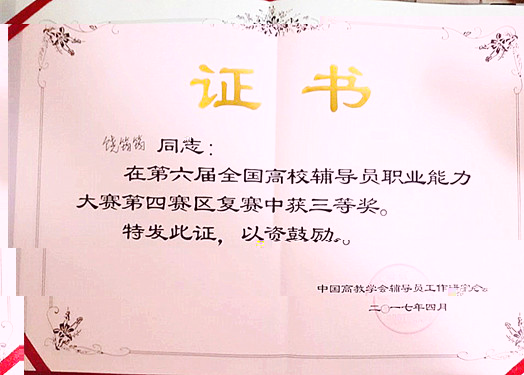 证书
同志：
在第六届全国高校辅导员职业能力
大赛第四赛区复赛中获三等奖。
特发此证，以资鼓励。
中国高教学会辅导员工作研究会
二〇一七年四月